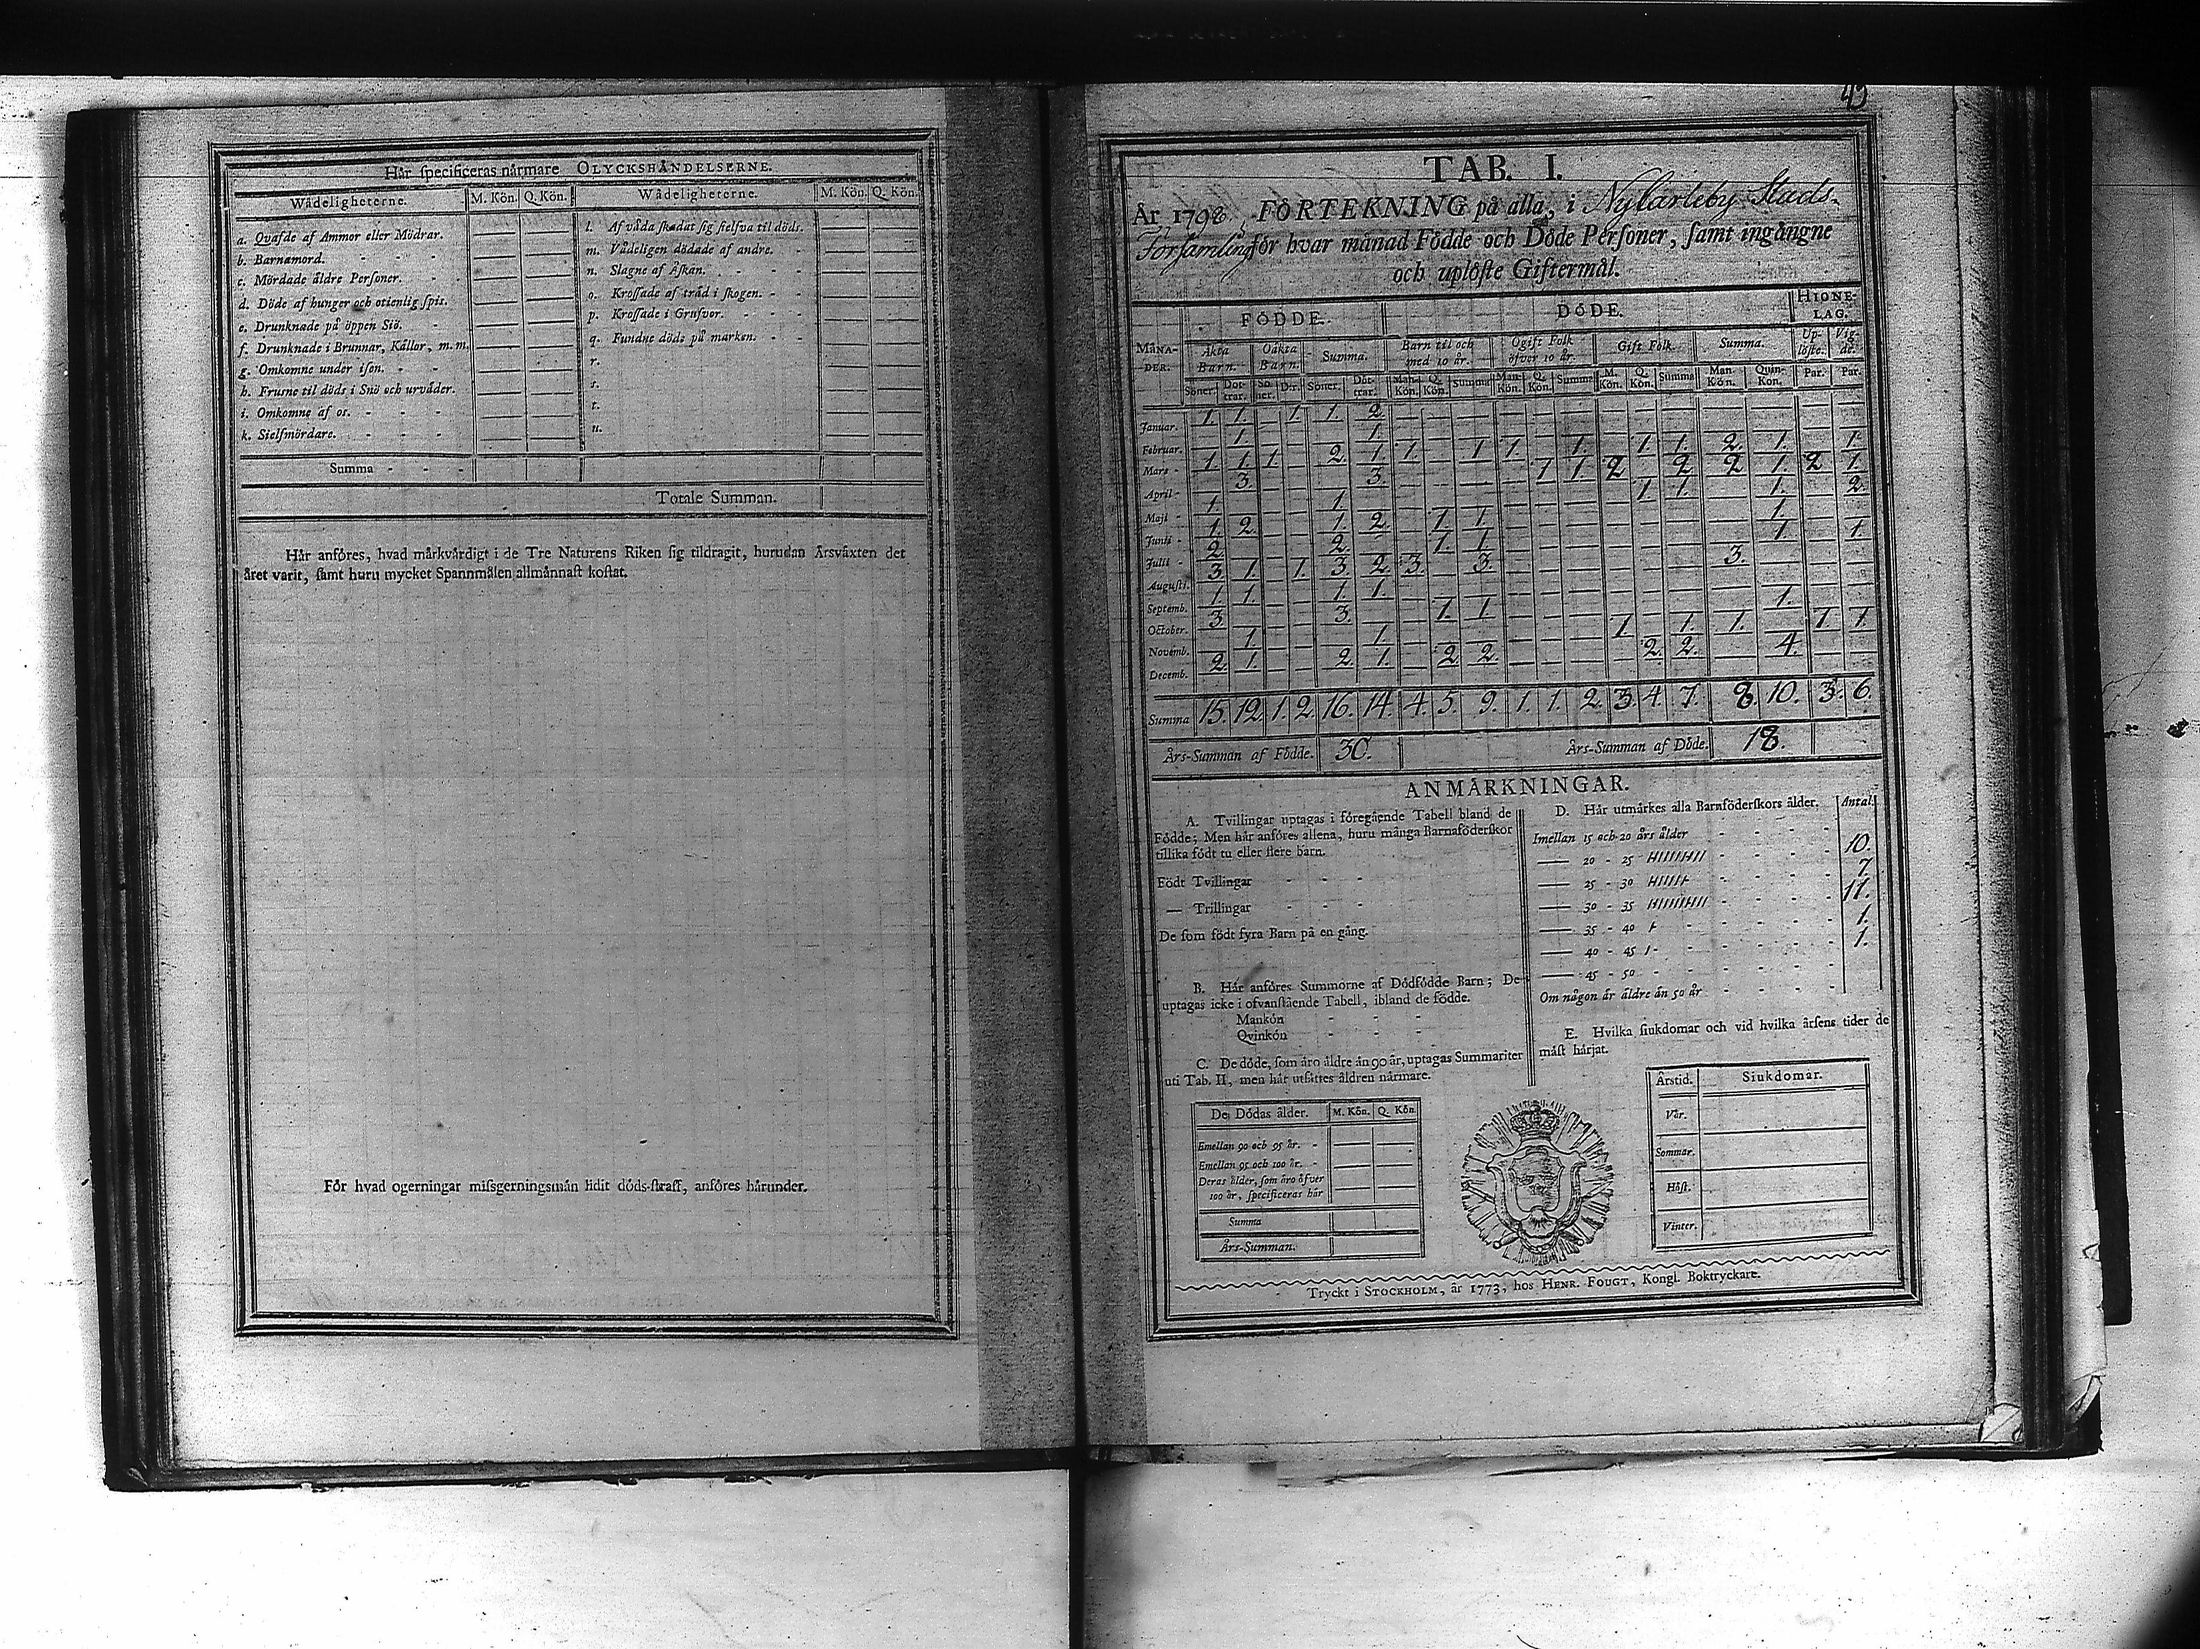 Hår specificeras nårmare OLYCKSHÅNDELSERNE.
Wådeligheterne. M. Kön. Q. Kön. Wådeligheterne. M. Kön. Q. Kön.
a. Qvafde af Ammor eller Mödrar. — —
b. Barnamord. — —
c. Mördade äldre Personer. — —
d. Döde af hunger och otienlig spis. — —
e. Drunknade på öppen Siö. — —
f. Drunknade i Brunnar, Källor, m. m. — —
g. Omkomne under isen. — —
h. Frusne til döds i Snö och urväder. — —
i. Omkomne af os. — —
k. Sielfmördare. — —
l. Af våda skadat sig sielfva til döds. — —
m. Vådeligen dödade af andre. — —
n. Slagne af Åskan. — —
o. Krossade af träd i skogen. — —
p. Krossade i Grufvor. — —
q. Fundne döde på marken. — —
r. — —
s. — —
t. — —
u. — —
Summa
Totale Summan.
Hår anföres, hvad mårkvårdigt i de Tre Naturens Riken sig tildragit, hurudan Årsväxten det
året varit, samt huru mycket Spannmålen allmånnast kostat.
För hvad ogerningar missgerningsmån lidit döds-straff, anföres hårunder.
43
TAB. I.
År 1798, FÖRTEKNING på alla, i Nykarleby Stads-
Församling för hvar månad Födde och Döde Personer, samt ingångne
och uplöste Giftermål.
MÅNADER. FÖDDE. DÖDE. HIONELAG.
Äkta Barn. Oäkta Barn. Summa. Barn til och med 10 år. Ogift Folk öfver 10 år. Gift Folk. Summa. Uplöste. Vigde.
Söner. Dottrar. Söner. D:r. Söner. Dottrar. Man-Kön. Q. Kön. Summa Man-Kön. Q. Kön. Summa M. Kön. Q. Kön. Summa Man. Kön. Quin-Kon. Par. Par.
Januar. 1. 1. — 1. 1. 2. — — — — — — — — — — — — —
Februar. — 1. — — — 1. 1. — 1 1. — 1. — 1. 1. 2. 1. — 1.
Mars 1. 1. 1. — 2. 1. — — — — 1 1. 2 — 2 2 1. 2 1.
April — 3. — — — 3. — — — — — — — 1 1. — 1. — 2.
Maji 1. — — — 1. — — 1. 1. — — — — — — — 1. — —
Junii 1. 2. — — 1. 2. — 1. 1. — — — — — — — 1. — 1.
Julii 2. — — — 2. — 3. — 3. — — — — — — 3. — — —
Augusti. 3. 1. — 1. 3. 2. — — — — — — — — — — — — —
Septemb. 1. 1. — — 1. 1. — 1. 1. — — — — — — — 1. — —
October. 3. — — — 3. — — — — — — — 1. — 1. 1. — 1. 1.
Novemb. — 1. — — — 1. — 2. 2. — — — — 2. 2. — 4. — —
Decemb. 2. 1. — — 2. 1.
Summa 15. 12. 1. 2. 16. 14. 4. 5. 9. 1. 1. 2. 3. 4. 7. 8. 10. 3. 6.
Års-Summan af Födde. 30. Års-Summan af Döde. 18.
ANMÄRKNINGAR.
A. Tvillingar uptagas i föregående Tabell bland de
Födde; Men hår anföres allena, huru många Barnaföderskor
tillika födt tu eller flere barn.
Födt Tvillingar
— Trillingar
De som födt fyra Barn på en gång.
B. Hår anföres Summorne af Dödfödde Barn; De
uptagas icke i ofvanstående Tabell, ibland de födde.
Mankön
Qvinkön
C. De döde, som åro åldre ån 90 år, uptagas Summariter
uti Tab. II, men hår utsättes åldren nårmare.
De Dödas ålder. M. Kön. Q. Kön.
Emellan 90 och 95 år. — —
Emellan 95 och 100 år. — —
Deras ålder, som äro öfver
100 år, specificeras här — —
Summa
Års-Summan.
D. Hår utmårkes alla Barnföderskors ålder. Antal.
Imellan 15 och 20 års ålder
— 20 - 25 10.
— 25 - 30 7.
— 30 - 35 11.
— 35 - 40 1.
— 40 - 45 1.
— 45 - 50
Om någon är äldre än 50 år
E. Hvilka siukdomar och vid hvilka årsens tider de
måst hårjat.
Årstid. Siukdomar.
Vår.
Sommar.
Höst.
Vinter.
Tryckt i STOCKHOLM, år 1773, hos HENR. FOUGT, Kongl. Boktryckare.